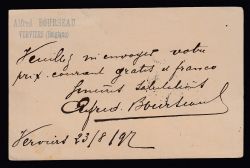 Alfred BOURSEAU
VERVIERS (Belgique)
Veuillez m'envoyer votre
prix-courant gratis et franco
Sincères Salutations
Alfred Bourseau
Verviers 23/8/97